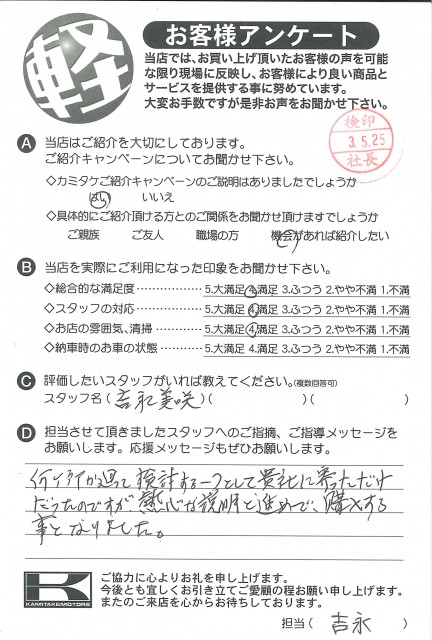 軽
お客様アンケート
当店では、お買い上げ頂いたお客様の声を可能
な限り現場に反映し、お客様により良い商品と
サービスを提供する事に努めています。
大変お手数ですが是非お声をお聞かせ下さい。
検印
3.5.25
社長
A 当店はご紹介を大切にしております。
ご紹介キャンペーンについてお聞かせ下さい。
◇カミタケご紹介キャンペーンのご説明はありましたでしょうか
はい いいえ
◇具体的にご紹介頂ける方とのご関係をお聞かせ頂けますでしょうか
ご親族 ご友人 職場の方 機会があれば紹介したい
B 当店を実際にご利用になった印象をお聞かせ下さい。
◇総合的な満足度 5.大満足 4.満足 3.ふつう 2.やや不満 1.不満
◇スタッフの対応 5.大満足 4.満足 3.ふつう 2.やや不満 1.不満
◇お店の雰囲気、清掃 5.大満足 4.満足 3.ふつう 2.やや不満 1.不満
◇納車時のお車の状態 5.大満足 4.満足 3.ふつう 2.やや不満 1.不満
C 評価したいスタッフがいれば教えてください。(複数回答可)
スタッフ名(吉永美咲)( )( )
D 担当させて頂きましたスタッフへのご指摘、ご指導メッセージを
お願いします。応援メッセージもぜひお願いします。
何件か回って検討する一つとして貴社に寄っただけ
だったのですが熱心な説明と進めで、購入する
事となりました。
K
KAMITAKEMOTORS
ご協力に心よりお礼を申し上げます。
今後とも宜しくお引き立てご愛顧の程お願い申し上げます。
またのご来店を心からお待ちしております。
担当(吉永)